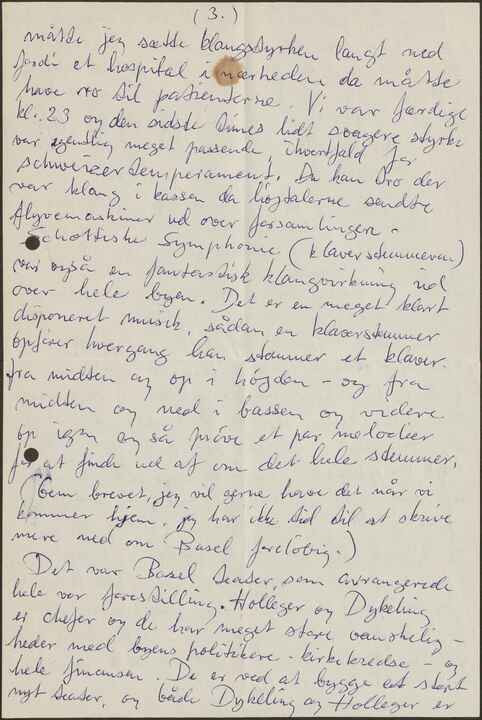 (3.)
måtte jeg sætte klangstyrken langt ned
fordi et hospital i nærheden da måtte
have ro til patienterne. Vi var færdige
kl. 23 og den sidste times lidt svagere styrke
var egentlig meget passende, ihvertfald for
schweizertemperament. Du kan tro der
var klang i kassen da højtalerne sendte
flyvemaskiner ud over forsamlingen.
Schottische Symphonie (klaverstemmeren)
var også en fantastisk klangvirkning ud
over hele byen. Det er en meget klart
disponeret musik, sådan en klaverstemmer
opfører hvergang han stemmer et klaver.
fra midten og op i højden - og fra
midten og ned i bassen og videre
op igen og så prøve et par melodier
for at finde ud af om det hele stemmer.
(Gem brevet, jeg vil gerne have det når vi
kommer hjem, jeg har ikke tid til at skrive
mere ned om Basel foreløbig.)
Det var Basel teater, som arrangerede
hele vor forestilling. Holleger og Dykeling
er chefer og de har meget store vanskelig-
heder med byens politikere - kirkekredse - og
hele finansen. De er ved at bygge et stort
nyt teater, og både Dykeling og Holleger er